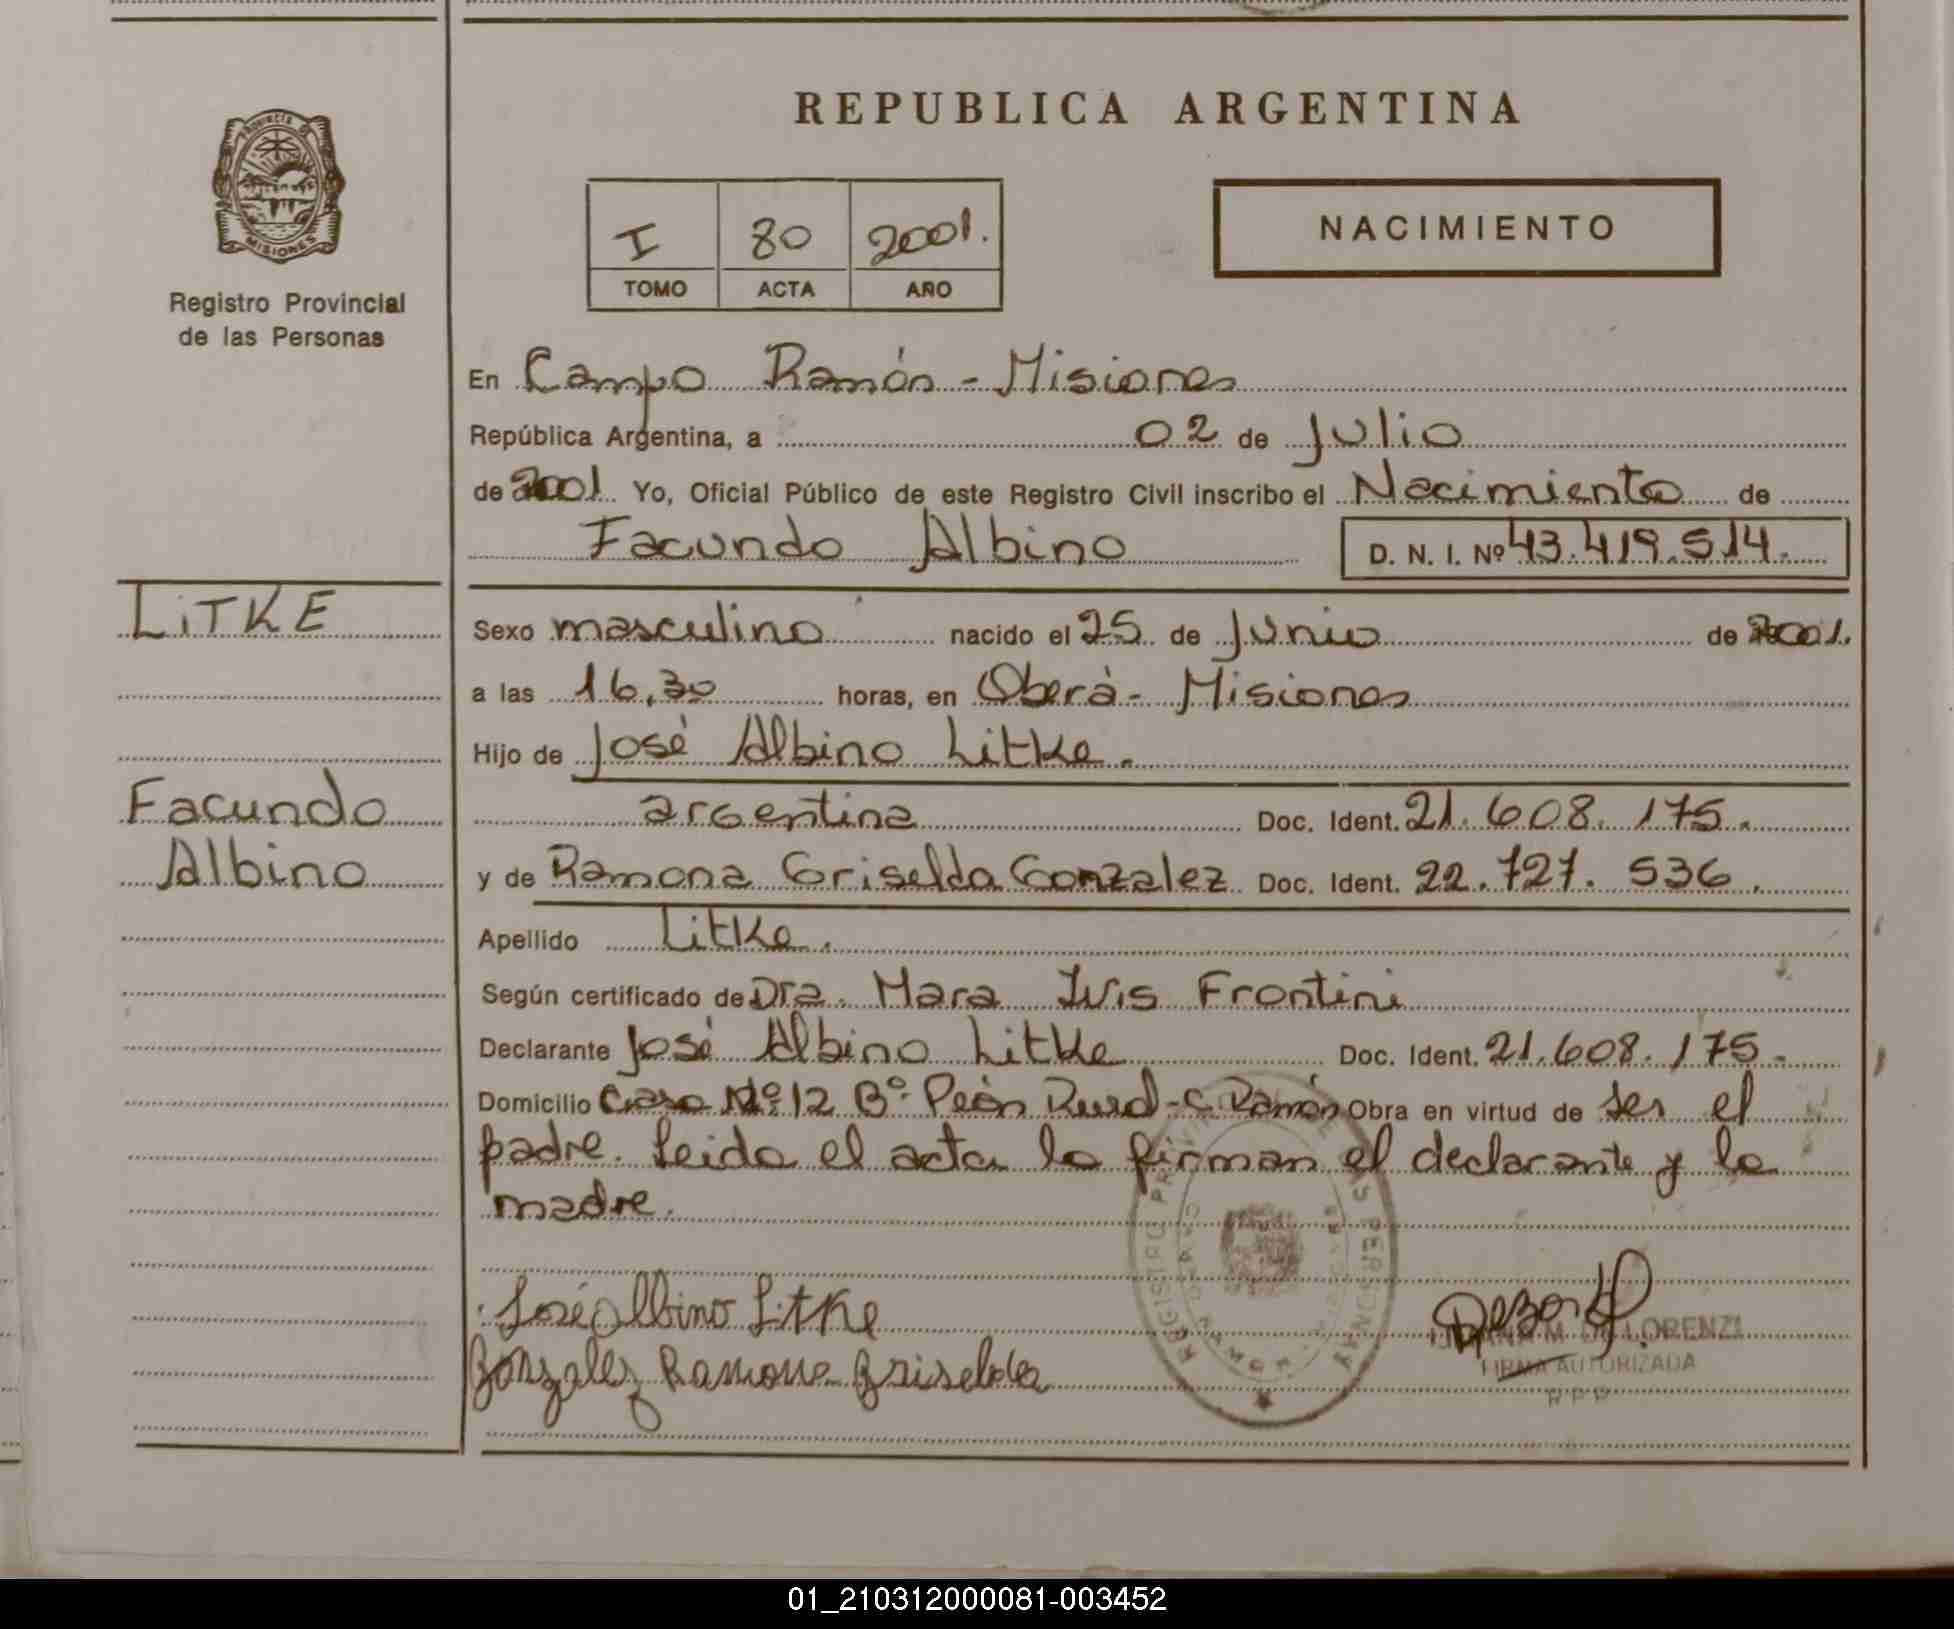 REPUBLICA ARGENTINA
PROVINCIA DE
MISIONES
Registro Provincial
de las Personas
I 80 2001.
TOMO ACTA AÑO
NACIMIENTO
En Campo Ramón - Misiones
República Argentina, a 02 de Julio
de 2001 Yo, Oficial Público de este Registro Civil inscribo el Nacimiento de
Facundo Albino D. N. I. Nº 43.419.514.
LiTKE
Facundo
Albino
Sexo masculino nacido el 25 de Junio de 2001.
a las 16,30 horas, en Oberá - Misiones
Hijo de José Albino Litke.
argentina Doc. Ident. 21.608.175.
y de Ramona Griselda Gonzalez Doc. Ident. 22.727.536.
Apellido Litke.
Según certificado de Dra. Mara Ivis Frontini
Declarante José Albino Litke Doc. Ident. 21.608.175.
Domicilio Casa Nº 12 Bº Peón Rural - C. Ramón Obra en virtud de ser el
padre. Leida el acta la firman el declarante y la
madre.
José Albino Litke
Gonzalez Ramona Griselda
REGISTRO PROVINCIAL DE LAS PERSONAS
CAMPO RAMON
M. DE LORENZI
FIRMA AUTORIZADA
R P P
01_210312000081-003452